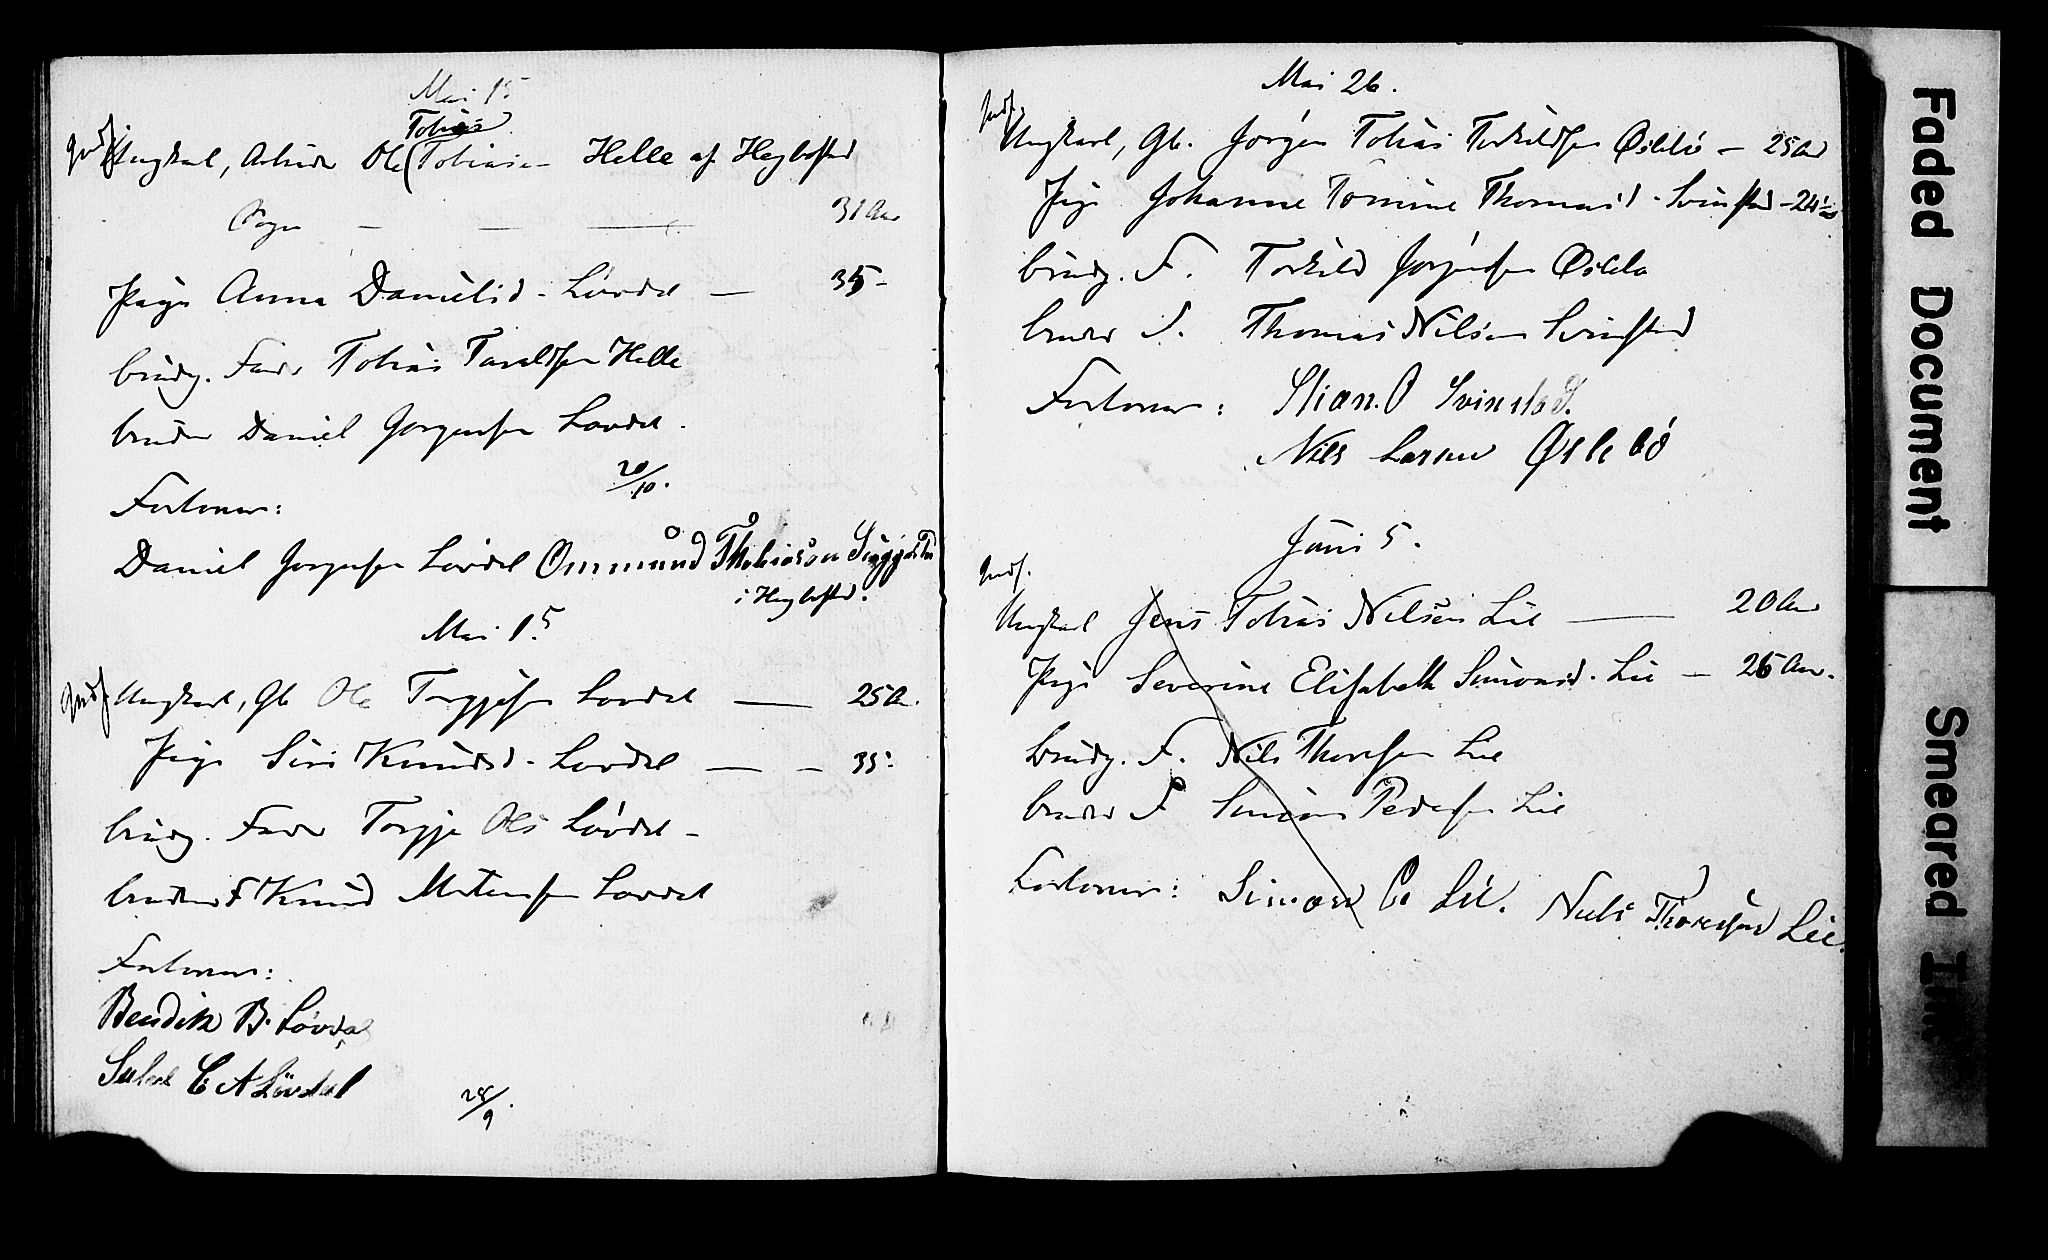 Mai 15
Tobias
Indf. Ungkarl, Arbeider Ole (Tobias - Helle af Hegbostad
Sogn - - - 31 Aar
Pige Anna Danielsd. Løvdal - 35 -
brudg. Fader Tobias Taraldsen Helle
bruden Daniel Jørgensen Løvdal.
20/10.
Forlover:
Daniel Jørgensen Løvdal Ommund Thobiasen
i Hegbostad.
Mai 15
Indf. Ungkarl, Gb Ole Torgjesen Løvdal — 25 A.
Pige Siri Knudsd. Løvdal — - 35.
brudg. Fader Torgje Ols Løvdal -
bruden F Knud Mortensen Løvdal
Forlover:
Bendik B. Løvdal
C A Løvdal
28/9.
Mai 26.
Indf.
Ungkarl, Gb. Jørgen Tobias Torkildsen Øslebø - 25 Aar
Pige Johanne Tomine Thomasd. Svinstad - 24 1/2
brudg. F. Torkild Jørgensen Øslebø
bruden F. Thomas Nilsen Svinstad
Forlover: Stian. O Svinstad.
Nils Larsen Øslebø
Juni 5.
Indf.
Ungkarl Jens Tobias Nilsen Lie — 20 Aar
Pige Severine Elisabeth Simonsd. Lie - 26 Aar.
brudg. F. Nils Thoresen Lie
bruden F Simon Pedersen Lie
Forlover: Simon P Lie. Niels Thoresen Lie.
Faded Document
Smeared Ink